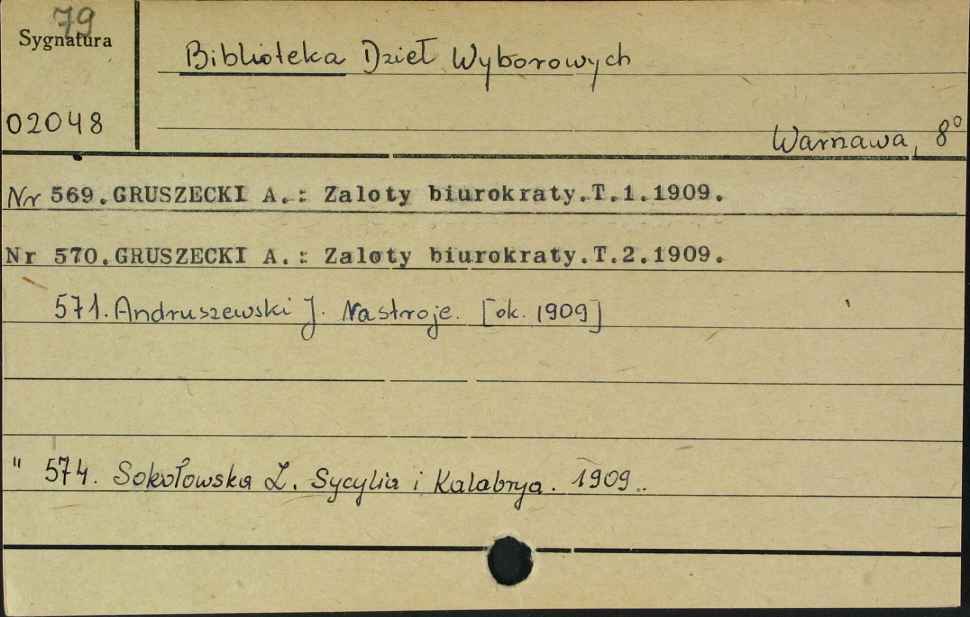 79
Sygnatura
Biblioteka Dzieł Wyborowych
02048
Warszawa, 8°
Nr 569.GRUSZECKI A.: Zaloty biurokraty.T.1.1909.
Nr 570.GRUSZECKI A.: Zaloty biurokraty.T.2.1909.
571. Andruszewski J. Nastroje. [ok. 1909]
" 574. Sokołowska Z. Sycylia i Kalabrya. 1909..